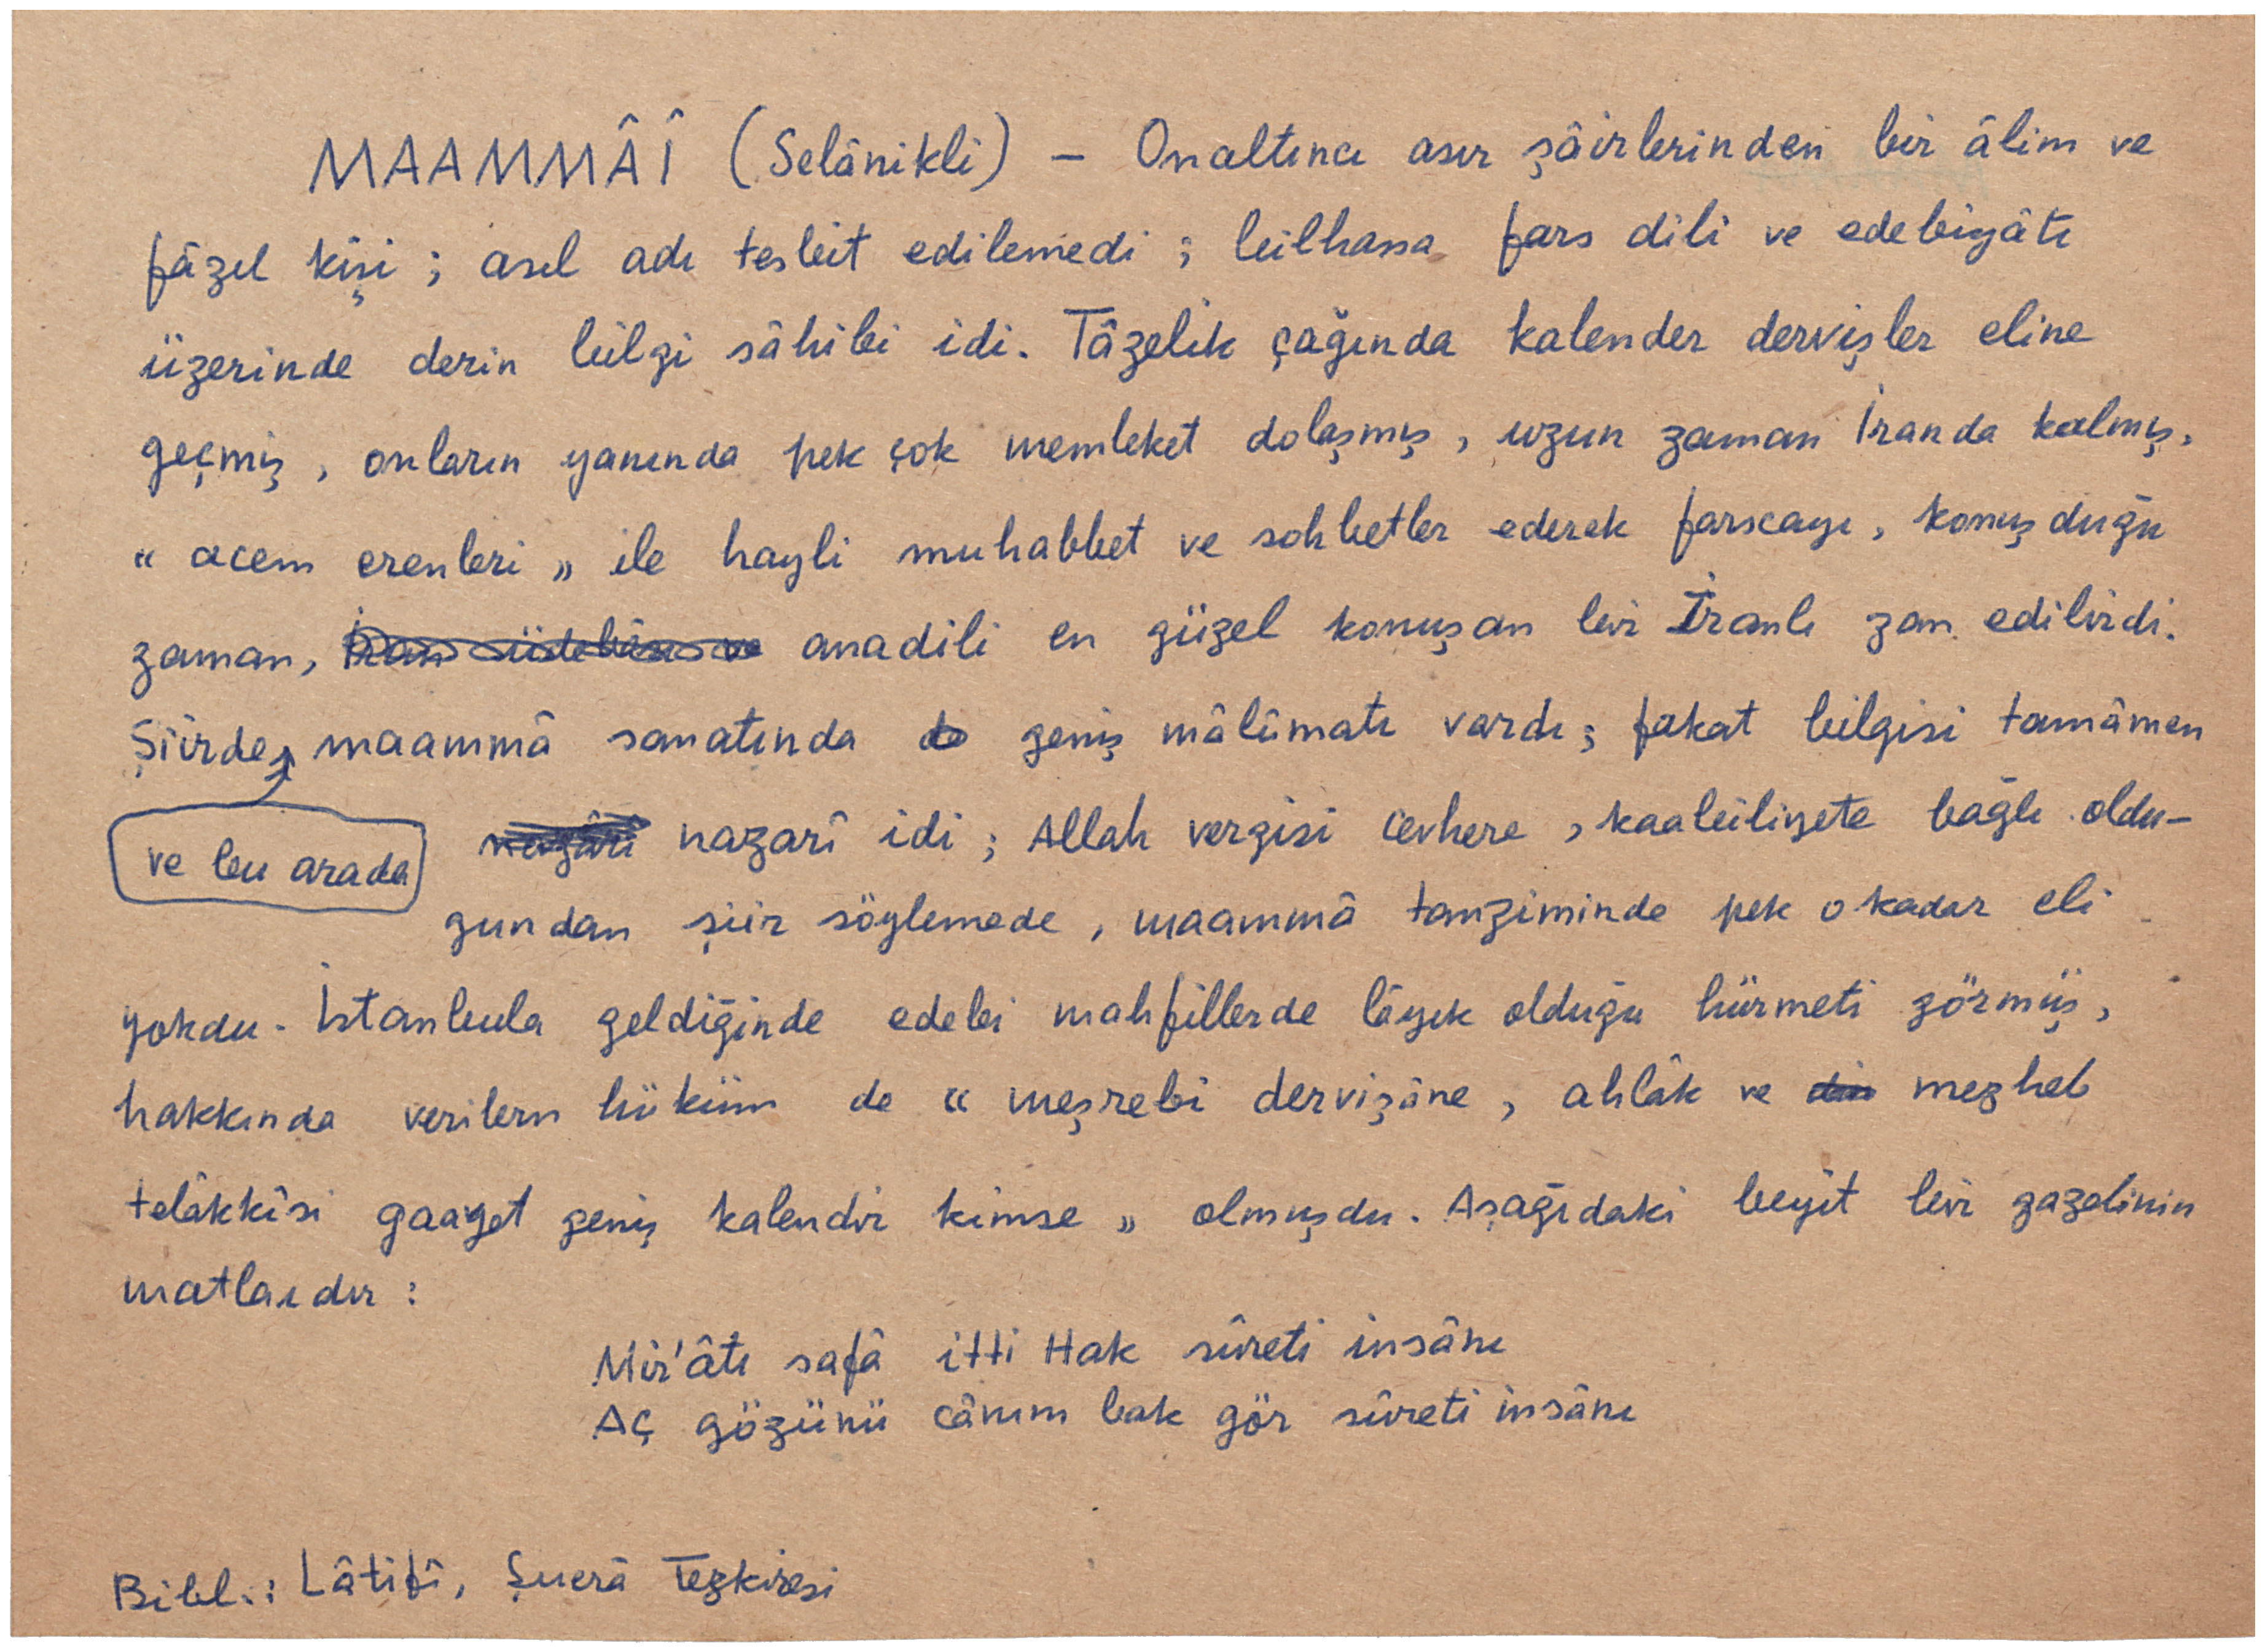 MAAMMÂÎ (Selânikli) — Onaltıncı asır şâirlerinden bir âlim ve
fâzıl kişi ; asıl adı tesbit edilemedi ; bilhassa fars dili ve edebiyâtı
üzerinde derin bilgi sâhibi idi. Tâzelik çağında kalender dervişler eline
geçmiş , onların yanında pek çok memleket dolaşmış , uzun zaman İranda kalmış,
" acem erenleri „ ile hayli muhabbet ve sohbetler ederek farscayı , konuşduğu
zaman, anadili en güzel konuşan bir İranlı zan edilirdi.
Şiirde, maammâ sanatında da geniş mâlûmatı vardı ; fakat bilgisi tamâmen
ve bu arada nazarî idi ; Allah vergisi cevhere , kaabiliyete bağlı oldu-
ğundan şiir söylemede , maammâ tanziminde pek o kadar eli
yokdu. İstanbula geldiğinde edebi mahfillerde lâyık olduğu hürmeti görmüş ,
hakkında verilern hüküm de " meşrebi dervişâne , ahlâk ve din mezheb
telâkkisi gaayet geniş kalendir kimse „ olmuşdu. Aşağıdaki beyit bir gazelinin
matlaıdır :
Mir'âtı safâ itti Hak sûreti insânı
Aç gözünü cânım bak gör sûreti insânı
Bibl. : Lâtifî, Şuerâ Tezkiresi